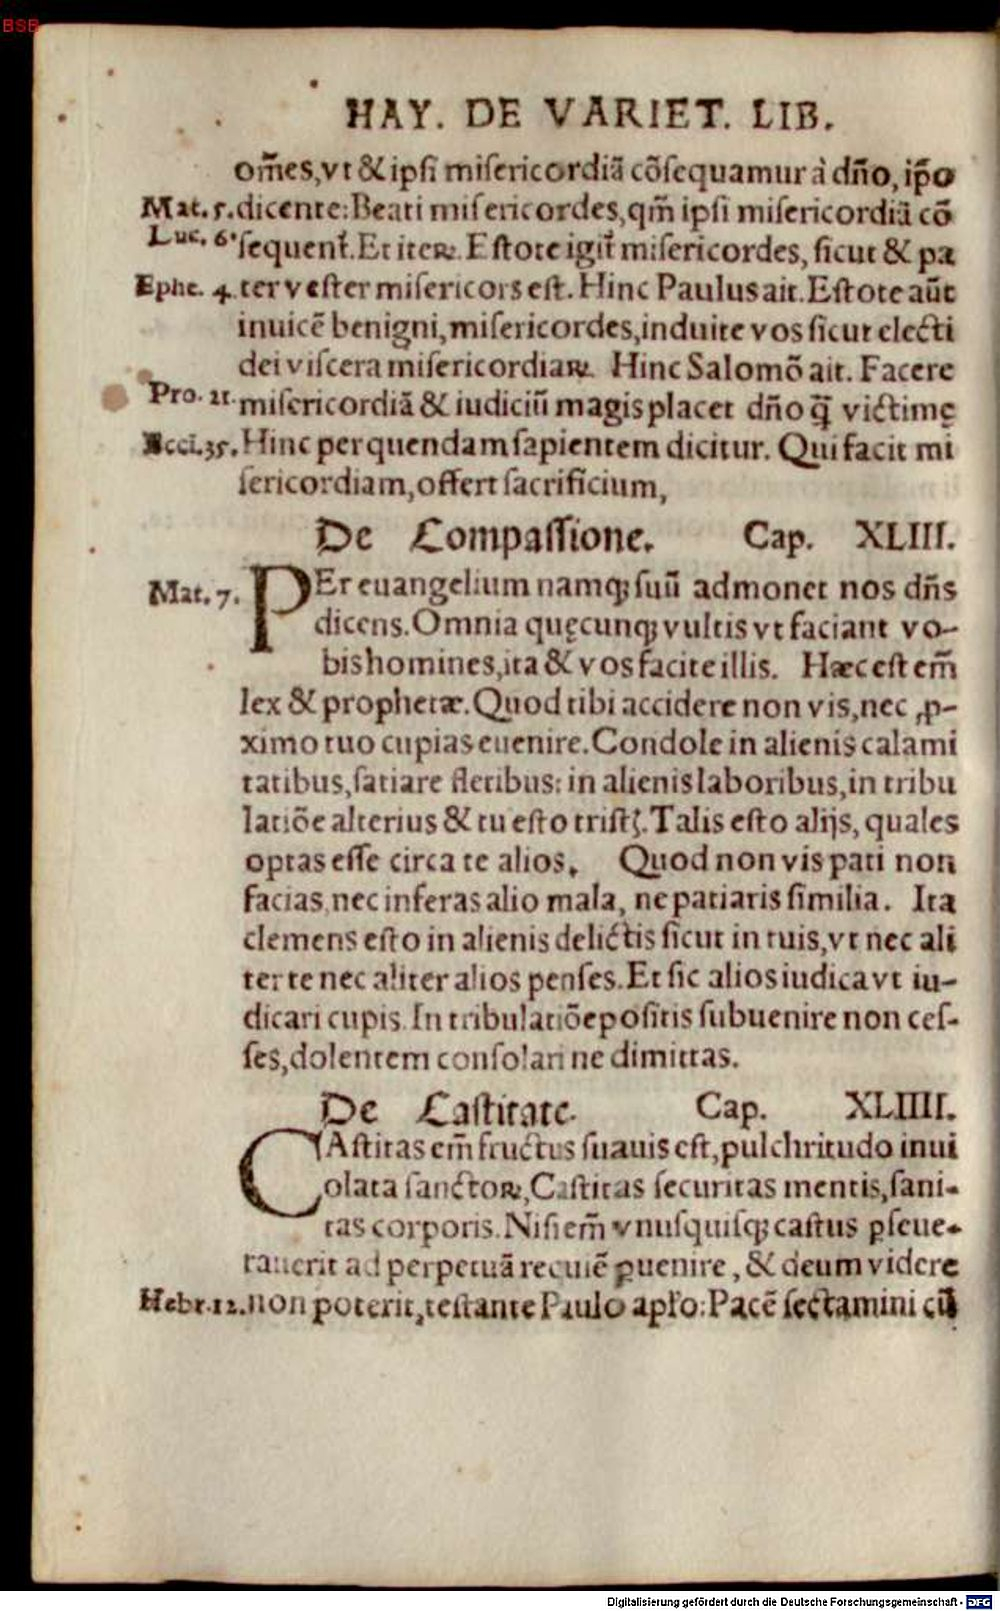 BSB
HAY. DE VARIET. LIB.
om̃es, vt & ipſi miſericordiã cõſequamur à dño, ip̃o
Mat. 5. dicente: Beati miſericordes, qm̃ ipſi miſericordiã cõ
Luc. 6. ſequent̃. Et iteꝝ. Eſtote igit̃ miſericordes, ſicut & pa
Ephe. 4. ter veſter miſericors eſt. Hinc Paulus ait. Eſtote aũt
inuicẽ benigni, miſericordes, induite vos ſicut electi
dei viſcera miſericordiaꝝ. Hinc Salomõ ait. Facere
Pro. 21. miſericordiã & iudiciũ magis placet dño q̃ victimę
Eccl. 35. Hinc per quendam ſapientem dicitur. Qui facit mi
ſericordiam, offert ſacrificium,
De Compaſſione. Cap. XLIII.
Mat. 7. PEr euangelium namqꝫ ſuũ admonet nos dñs
dicens. Omnia quęcunqꝫ vultis vt faciant vo-
bis homines, ita & vos facite illis. Hæc eſt em̃
lex & prophetæ. Quod tibi accidere non vis, nec ꝓ-
ximo tuo cupias euenire. Condole in alienis calami
tatibus, ſatiare fletibus: in alienis laboribus, in tribu
latiõe alterius & tu eſto triſtꝭ. Talis eſto alijs, quales
optas eſſe circa te alios. Quod non vis pati non
facias, nec inferas alio mala, ne patiaris ſimilia. Ita
clemens eſto in alienis delictis ſicut in tuis, vt nec ali
ter te nec aliter alios penſes. Et ſic alios iudica vt iu-
dicari cupis. In tribulatiõe poſitis ſubuenire non ceſ-
ſes, dolentem conſolari ne dimittas.
De Caſtitate. Cap. XLIIII.
CAſtitas em̃ fructus ſuauis eſt, pulchritudo inui
olata ſanctoꝝ, Caſtitas ſecuritas mentis, ſani-
tas corporis. Niſi em̃ vnuſquiſqꝫ caſtus ꝑſeue-
rauerit ad perpetuã requiẽ ꝑuenire, & deum videre
Hebr. 12. non poterit, teſtante Paulo apło: Pacẽ ſectamini cũ
Digitalisierung gefördert durch die Deutsche Forschungsgemeinschaft - DFG